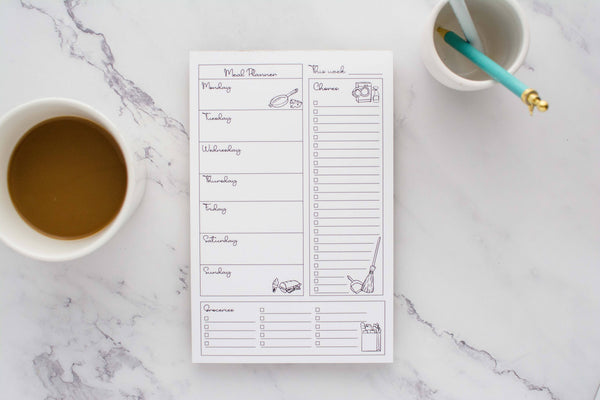 Meal Planner
Monday
Tuesday
Wednesday
Thursday
Friday
Saturday
Sunday
This week
Chores:
Groceries